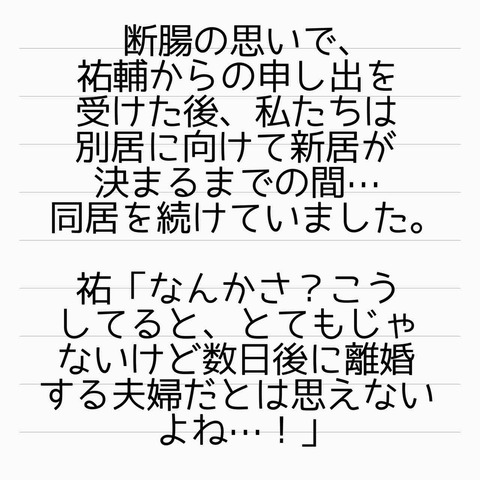 断腸の思いで、
祐輔からの申し出を
受けた後、私たちは
別居に向けて新居が
決まるまでの間…
同居を続けていました。
祐「なんかさ？こう
してると、とてもじゃ
ないけど数日後に離婚
する夫婦だとは思えない
よね…！」